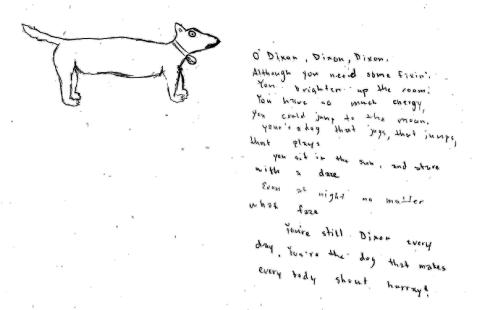 O' Dixon, Dixon, Dixon.
Although you need some fixin'.
You brighten up the room.
You have so much energy,
you could jump to the moon.
your'e a dog that jogs, that jumps,
that plays
you sit in the sun, and stare
with a daze
Even at night no matter
what faze
You're still Dixon every
day. You're the dog that makes
every body shout hurray!